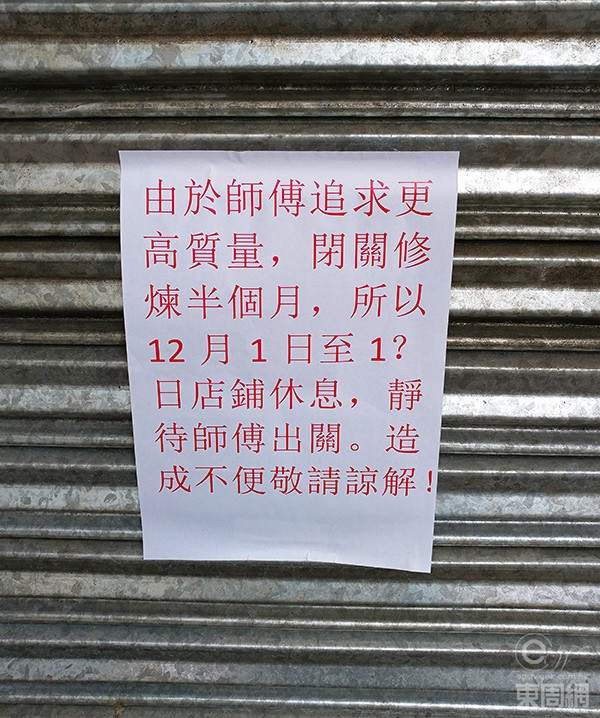 由於師傅追求更
高質量，閉關修
煉半個月，所以
12 月 1 日至 1?
日店鋪休息，靜
待師傅出關。造
成不便敬請諒解！
東周網